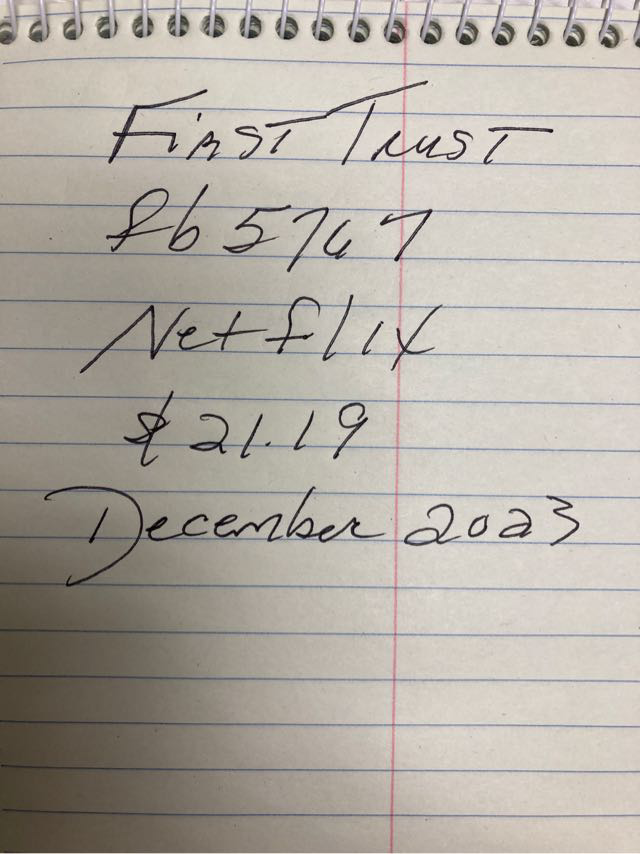 First Trust
fb 5767
Netflix
$21.19
December 2023